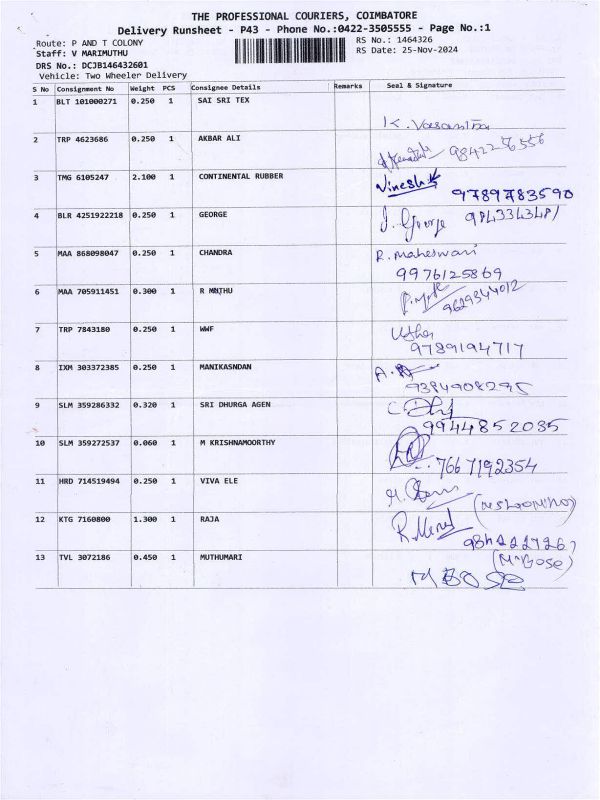 THE PROFESSIONAL COURIERS, COIMBATORE
Delivery Runsheet - P43 - Phone No.:0422-3505555 - Page No.:1
Route: P AND T COLONY RS No.: 1464326
Staff: V MARIMUTHU RS Date: 25-Nov-2024
DRS No.: DCJB146432601
Vehicle: Two Wheeler Delivery
S No Consignment No Weight PCS Consignee Details Remarks Seal & Signature
1 BLT 101000271 0.250 1 SAI SRI TEX
K. Vasantha
2 TRP 4623686 0.250 1 AKBAR ALI
9842256556
3 TMG 6105247 2.100 1 CONTINENTAL RUBBER Vinesh
9789783590
4 BLR 4251922218 0.250 1 GEORGE J. George 9843343481
5 MAA 868098047 0.250 1 CHANDRA R. maheswari
9976125869
6 MAA 705911451 0.300 1 R MUTHU
9629344012
7 TRP 7843180 0.250 1 WWF Usha
9789194717
8 IXM 303372385 0.250 1 MANIKASNDAN
9384908295
9 SLM 359286332 0.320 1 SRI DHURGA AGEN
9944852035
10 SLM 359272537 0.060 1 M KRISHNAMOORTHY
7667192354
11 HRD 714519494 0.250 1 VIVA ELE
12 KTG 7160800 1.300 1 RAJA
13 TVL 3072186 0.450 1 MUTHUMARI (M BOSE)
M BOSE